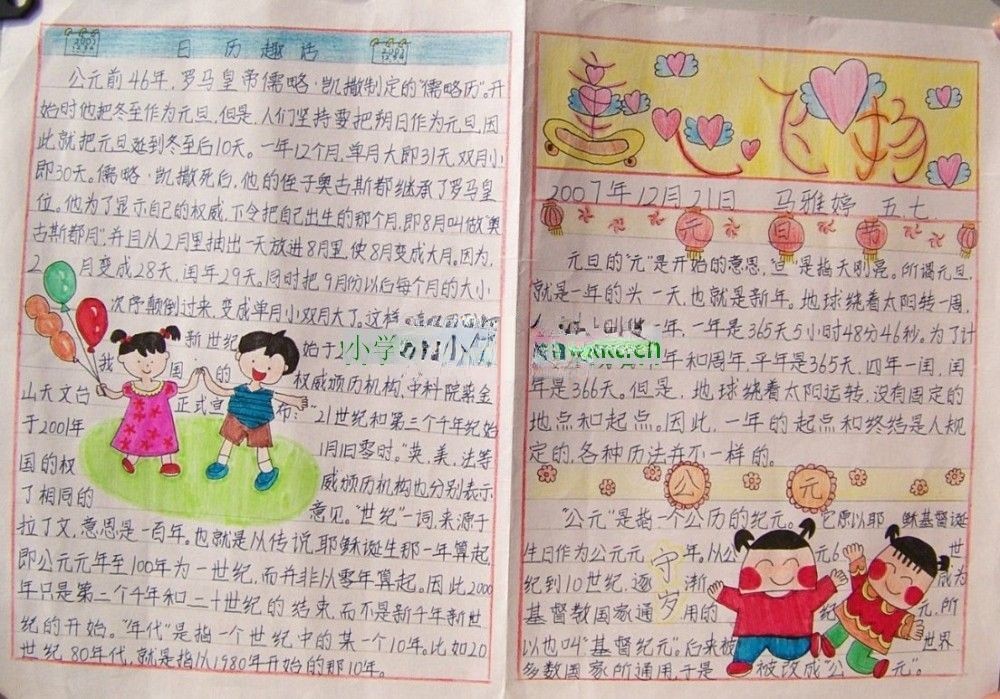 日历趣话
公元前46年,罗马皇帝儒略·凯撒制定的"儒略历"。开
始时他把冬至作为元旦,但是,人们坚持要把朔日作为元旦,因
此就把元旦延到冬至后10天。一年12个月,单月大即31天,双月小
即30天。儒略·凯撒死后,他的侄子奥古斯都继承了罗马皇
位。他为了显示自己的权威,下令把自己出生的那个月,即8月叫做"奥
古斯都月",并且从2月里抽出一天放进8月里,使8月变成大月。因为,
2月变成28天,闰年29天。同时把9月份以后每个月的大小
次序颠倒过来,变成单月小双月大了。这样
新世纪始于
我国的权威颁历机构,中科院紫金
山天文台正式宣布:"21世纪和第三个千年纪始
于2001年1月1日零时。"英、美、法等
国的权威颁历机构也分别表示
了相同的意见。"世纪"一词,来源于
拉丁文,意思是一百年。也就是从传说耶稣诞生那一年算起,
即公元元年至100年为一世纪,而并非从零年算起。因此2000
年只是第二个千年和二十世纪的结束,而不是新千年新世
纪的开始。"年代"是指一个世纪中的某一个10年。比如20
世纪80年代,就是指从1980年开始的那10年。
心飞扬
2007年12月21日 马雅婷 五.七.
元旦节
元旦的"元"是开始的意思,"旦"是指天刚亮。所谓元旦,
就是一年的头一天,也就是新年。地球绕着太阳转一周,
年,一年是365天5小时48分46秒。为了计
年和周年,平年是365天,四年一闰,闰
年是366天。但是,地球绕着太阳运转,没有固定的
地点和起点。因此,一年的起点和终结是人规
定的,各种历法并不一样的。
公元
"公元"是指一个公历的纪元。它原以耶稣基督诞
生日作为公元元年。从公元6世
纪到10世纪,逐渐成为
基督教国家通用的纪元,所
以也叫"基督纪元"。后来被世界
多数国家所通用,于是被改成"公元"。
守岁